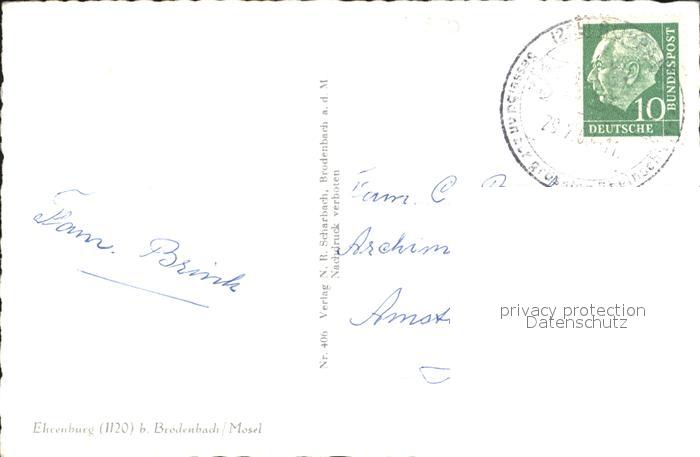 Fam. Brink
Ehrenburg (1120) b. Brodenbach/Mosel
Nr. 406 Verlag N. R. Scharbach, Brodenbach a. d. M
Nachdruck verboten
Fam. C.
Archim
Amst
10
DEUTSCHE
BUNDESPOST
privacy protection
Datenschutz